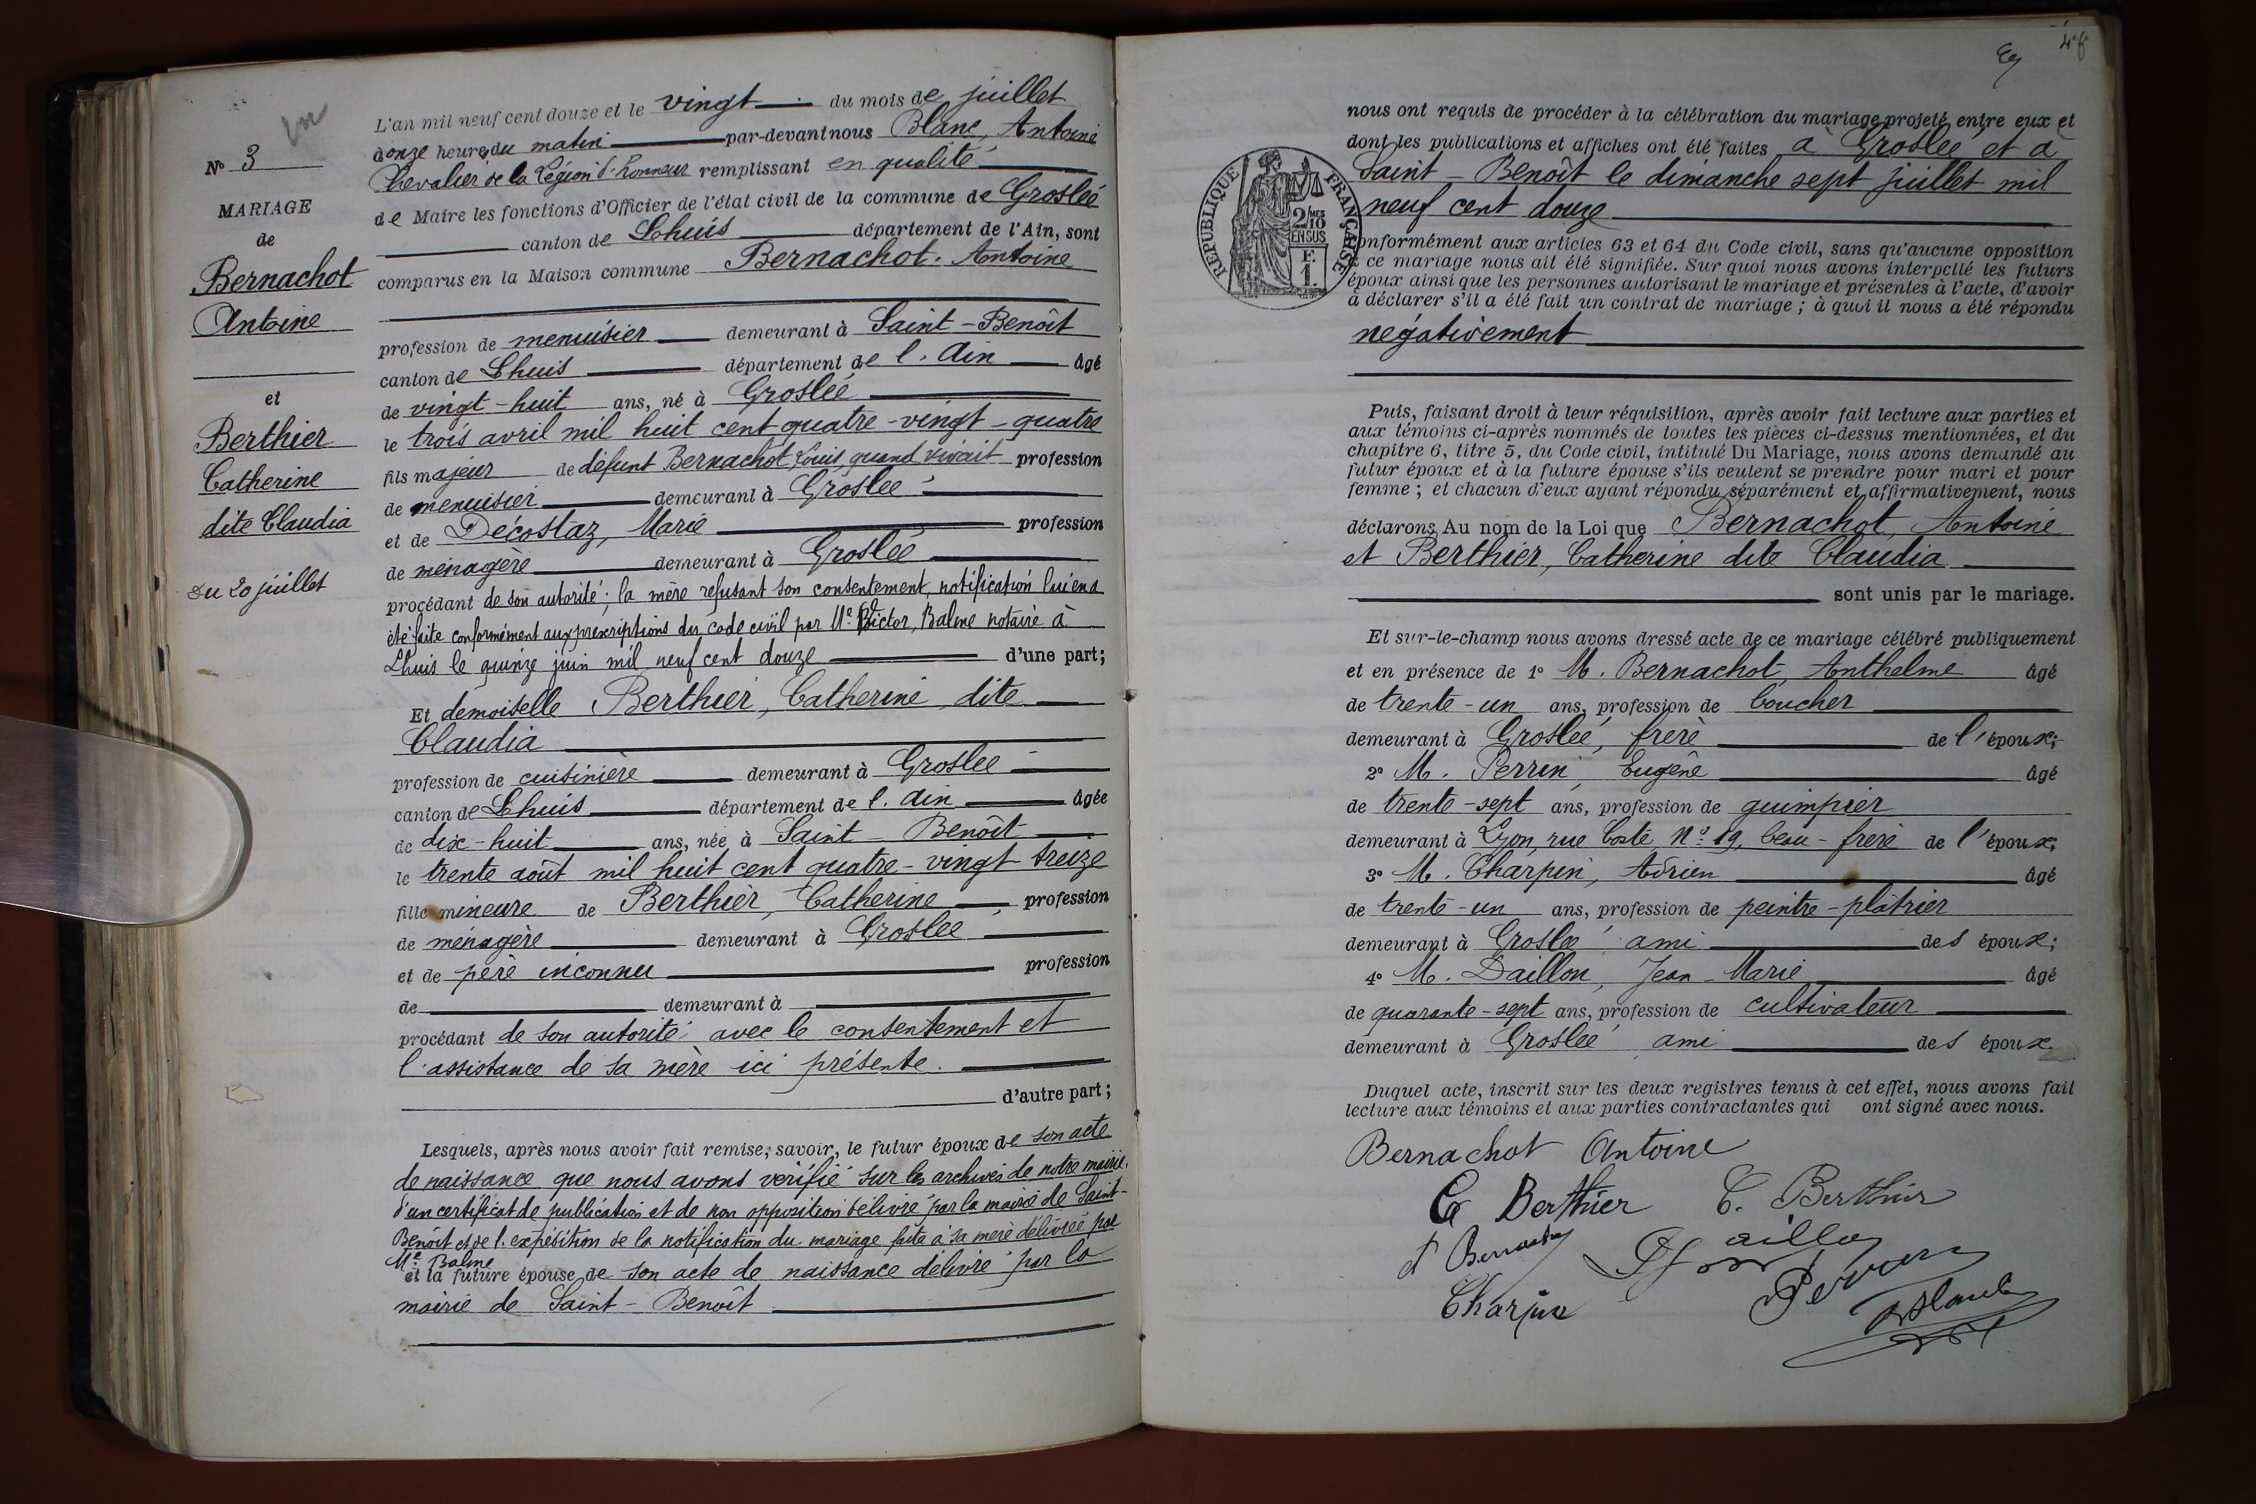 N° 3
MARIAGE
de
Bernachot
Antoine
et
Berthier
Catherine
dite Claudia
Du 20 juillet
L'an mil neuf cent douze et le vingt du mois de juillet
à onze heures du matin par-devant nous Blanc, Antoine
Chevalier de la Légion d'honneur remplissant en qualité
de Maire les fonctions d'Officier de l'état civil de la commune de Groslée
canton de Lhuis département de l'Ain, sont
comparus en la Maison commune Bernachot. Antoine
profession de menuisier demeurant à Saint-Benoît
canton de Lhuis département de l'Ain âgé
de vingt-huit ans, né à Groslée
le trois avril mil huit cent quatre-vingt-quatre
fils majeur de défunt Bernachot Louis, quand vivait profession
de menuisier demeurant à Groslée
et de Décostaz, Marie profession
de ménagère demeurant à Groslée
procédant de son autorité; la mère refusant son consentement, notification lui en a
été faite conformément aux prescriptions du code civil par Me Victor, Balme notaire à
Lhuis le quinze juin mil neuf cent douze d'une part;
Et demoiselle Berthier, Catherine, dite
Claudia
profession de cuisinière demeurant à Groslée
canton de Lhuis département de l'Ain âgée
de dix-huit ans, née à Saint-Benoît
le trente août mil huit cent quatre-vingt treize
fille mineure de Berthier, Catherine profession
de ménagère demeurant à Groslée
et de père inconnu profession
de demeurant à
procédant de son autorité avec le consentement et
l'assistance de sa mère ici présente.
d'autre part;
Lesquels, après nous avoir fait remise, savoir, le futur époux de son acte
de naissance que nous avons vérifié sur les archives de notre mairie,
d'un certificat de publication et de non opposition délivré par la mairie de Saint-
Benoît et de l'expédition de la notification du mariage faite à sa mère délivrée par
Me Balme
et la future épouse de son acte de naissance délivré par la
mairie de Saint-Benoît
48
nous ont requis de procéder à la célébration du mariage projeté entre eux et
dont les publications et affiches ont été faites à Groslée et à
Saint-Benoît le dimanche sept juillet mil
neuf cent douze
RÉPUBLIQUE FRANÇAISE
2/10 MES
EN SUS
F.
1.
conformément aux articles 63 et 64 du Code civil, sans qu'aucune opposition
à ce mariage nous ait été signifiée. Sur quoi nous avons interpellé les futurs
époux ainsi que les personnes autorisant le mariage et présentes à l'acte, d'avoir
à déclarer s'il a été fait un contrat de mariage; à quoi il nous a été répondu
négativement
Puis, faisant droit à leur réquisition, après avoir fait lecture aux parties et
aux témoins ci-après nommés de toutes les pièces ci-dessus mentionnées, et du
chapitre 6, titre 5, du Code civil, intitulé Du Mariage, nous avons demandé au
futur époux et à la future épouse s'ils veulent se prendre pour mari et pour
femme; et chacun d'eux ayant répondu séparément et affirmativement, nous
déclarons Au nom de la Loi que Bernachot, Antoine
et Berthier, Catherine dite Claudia
sont unis par le mariage.
Et sur-le-champ nous avons dressé acte de ce mariage célébré publiquement
et en présence de 1° M. Bernachot, Anthelme âgé
de trente-un ans, profession de boucher
demeurant à Groslée, frère de l'époux;
2° M. Perrin, Eugène âgé
de trente-sept ans, profession de guimpier
demeurant à Lyon, rue Coste, N° 19, beau-frère de l'époux;
3° M. Charpin, Adrien âgé
de trente-un ans, profession de peintre-plâtrier
demeurant à Groslée, ami des époux;
4° M. Daillon, Jean-Marie âgé
de quarante-sept ans, profession de cultivateur
demeurant à Groslée, ami des époux.
Duquel acte, inscrit sur les deux registres tenus à cet effet, nous avons fait
lecture aux témoins et aux parties contractantes qui ont signé avec nous.
Bernachot Antoine
Berthier C. Berthier
Charpin
Perrin
ABlanc